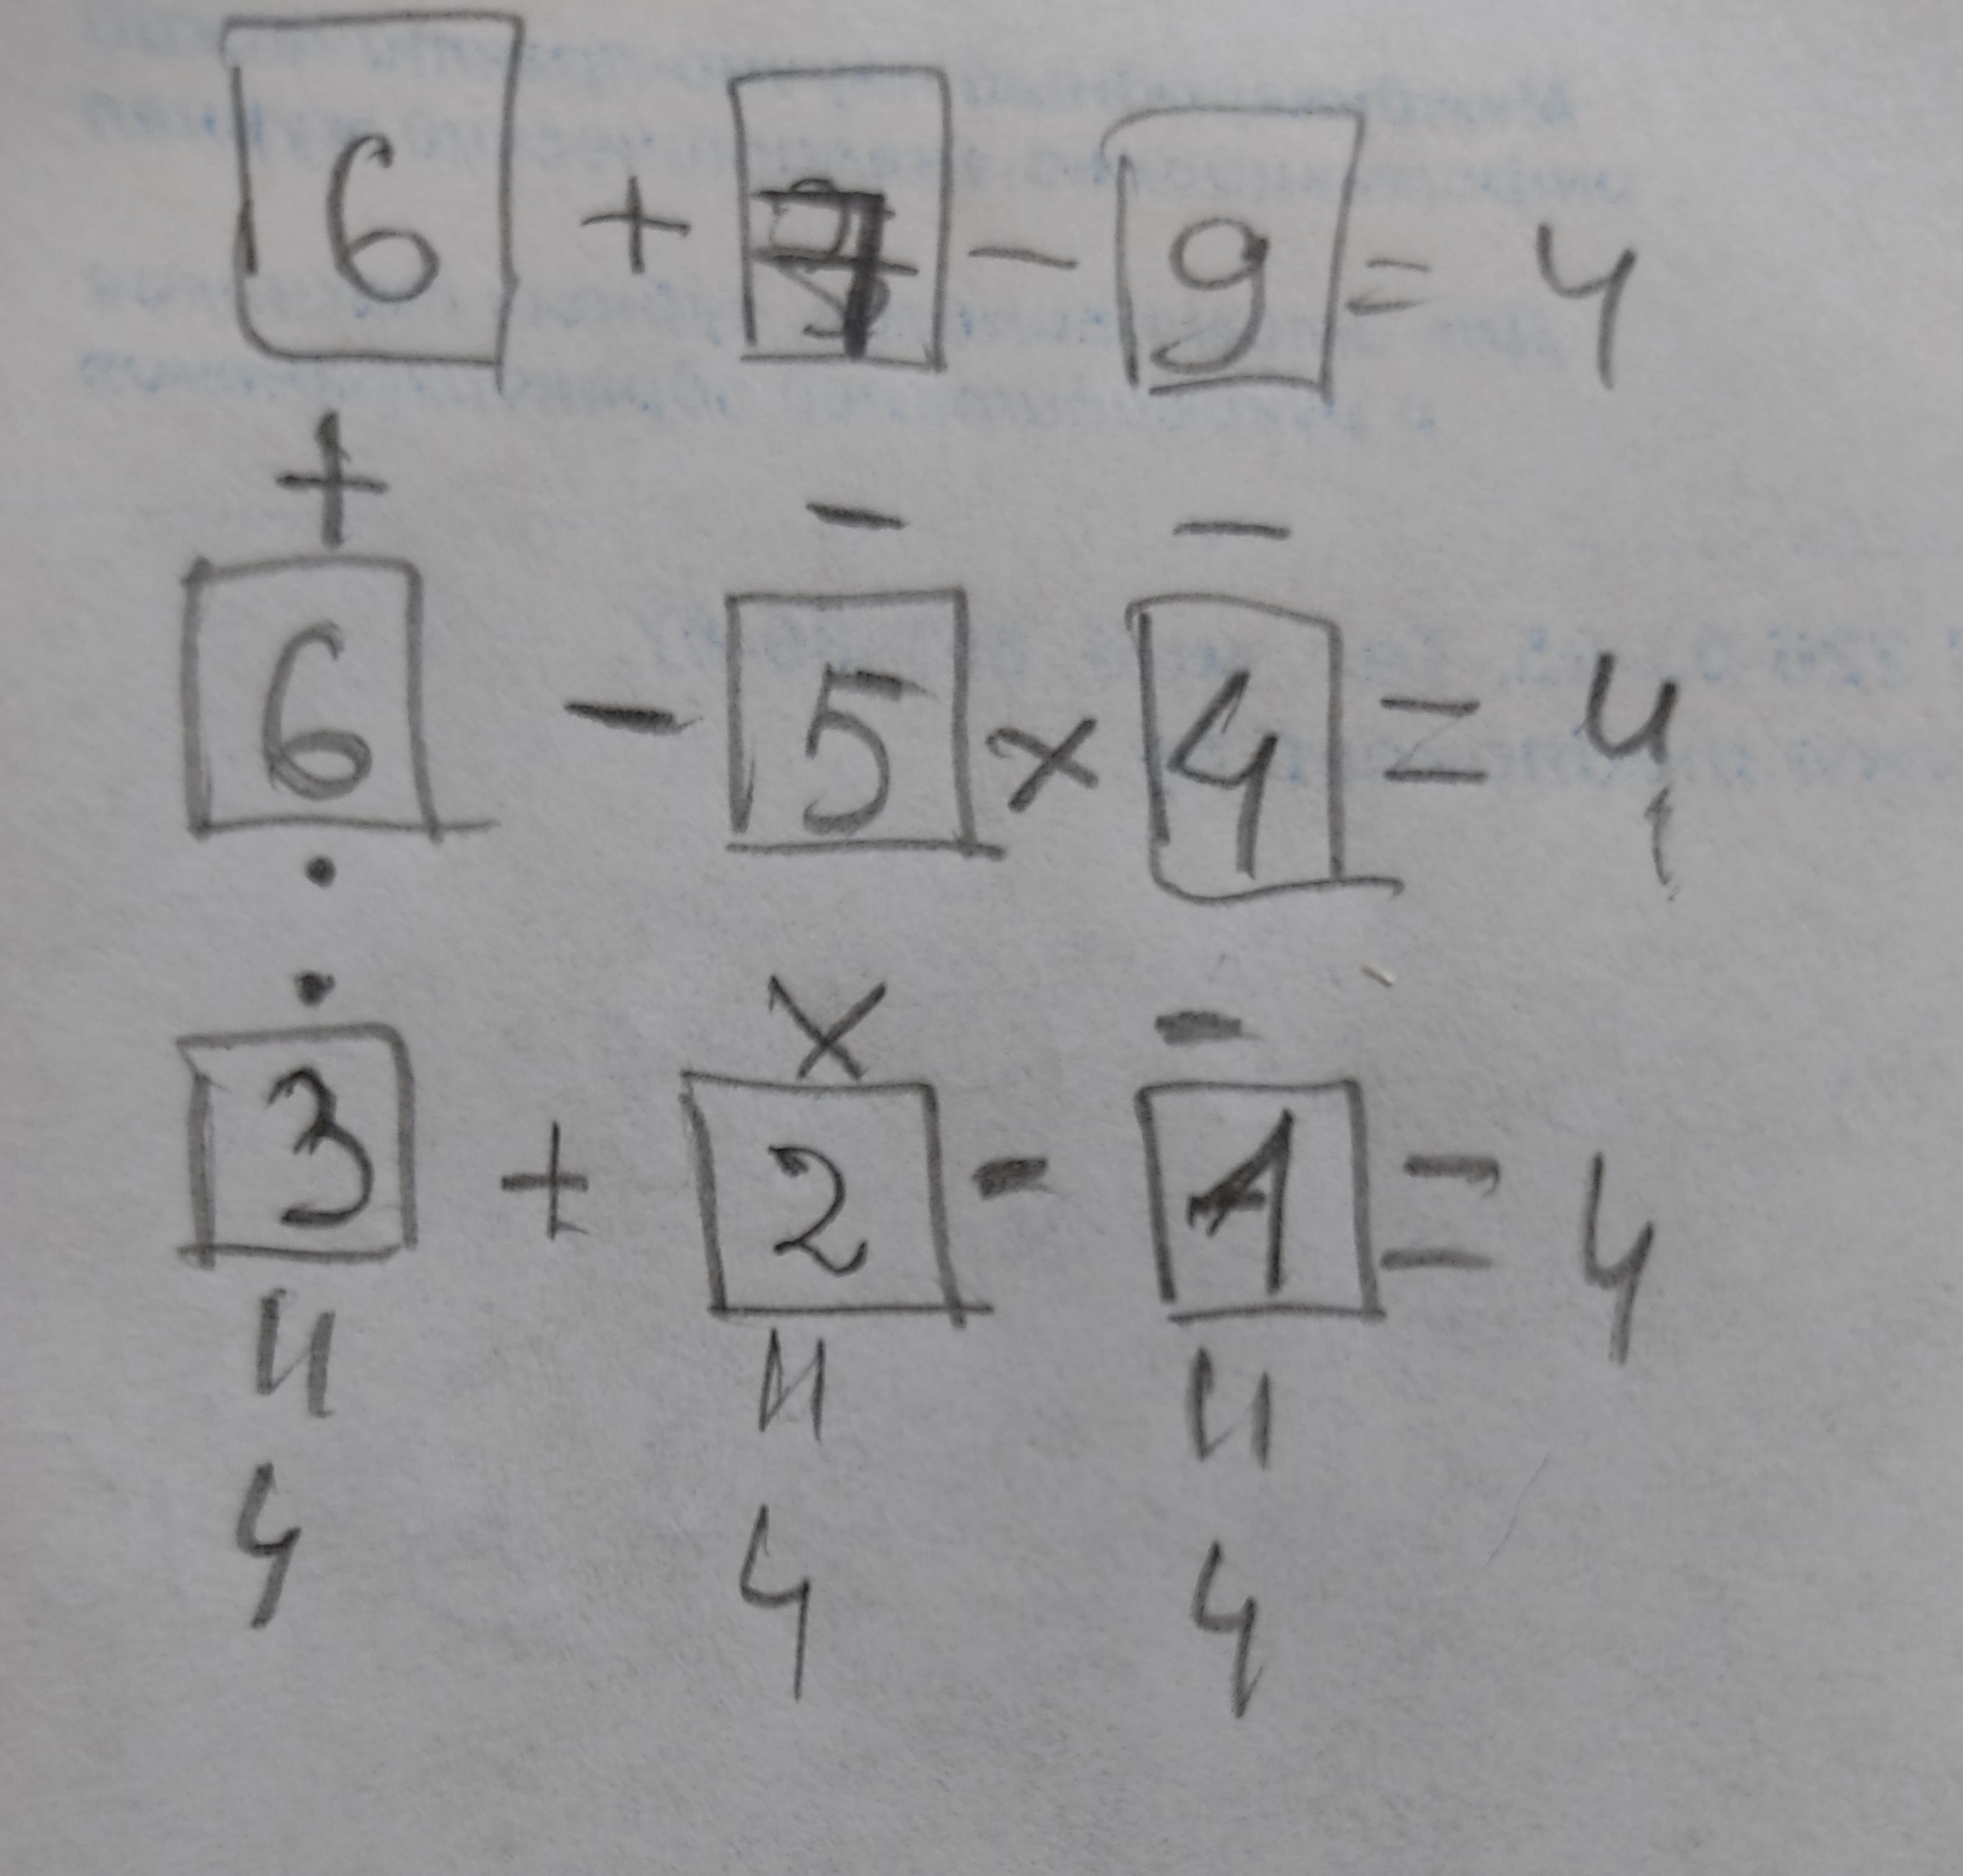 6 + 7 - 9 = 4
+ - -
6 - 5 × 4 = 4
: × -
3 + 2 - 1 = 4
" " "
4 4 4